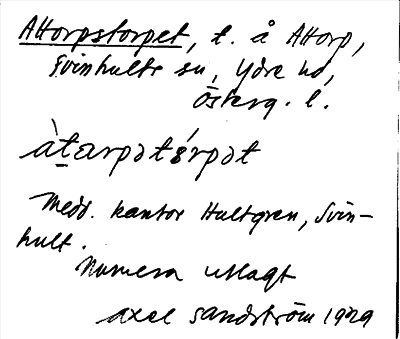 Attorpstorpet, t. å Attorp,
Svinhults sn, Ydre hd,
Österg. l.
àt̠arpətɞ́rpət
Medd. kantor Hultgren, Svin-
hult.
Numera utlagt
Axel Sandström 1929